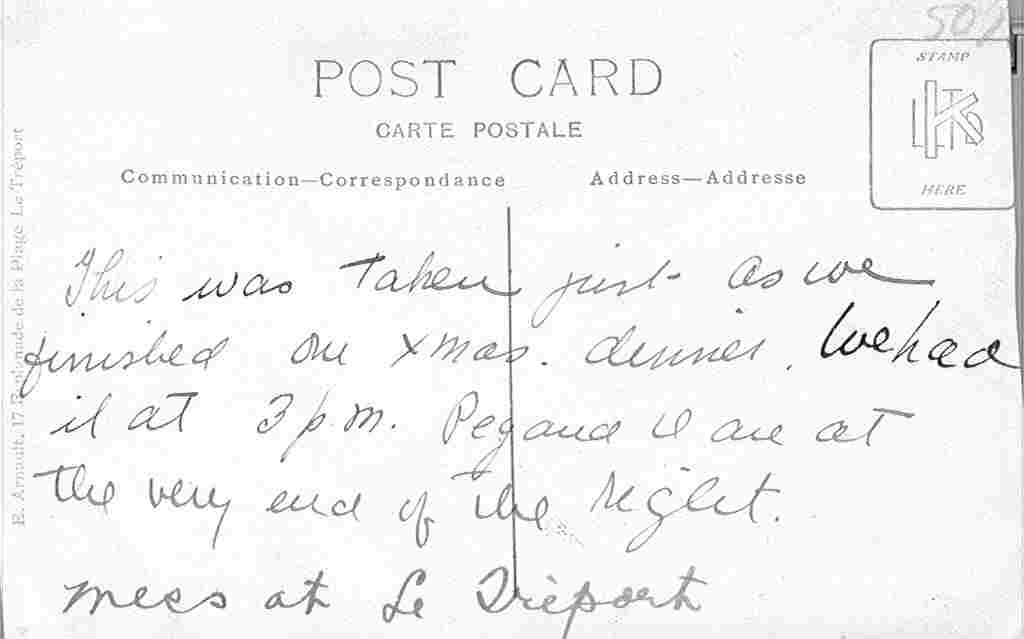 50
POST CARD
CARTE POSTALE
STAMP
HERE
Communication—Correspondance
Address—Addresse
This was taken just as we
finished our xmas. dinner. We had
it at 3 p.m. Peg and I are at
the very end of the right.
mess at Le Trieport
E. Arnault, 17 Rotonde de la Plage Le Tréport